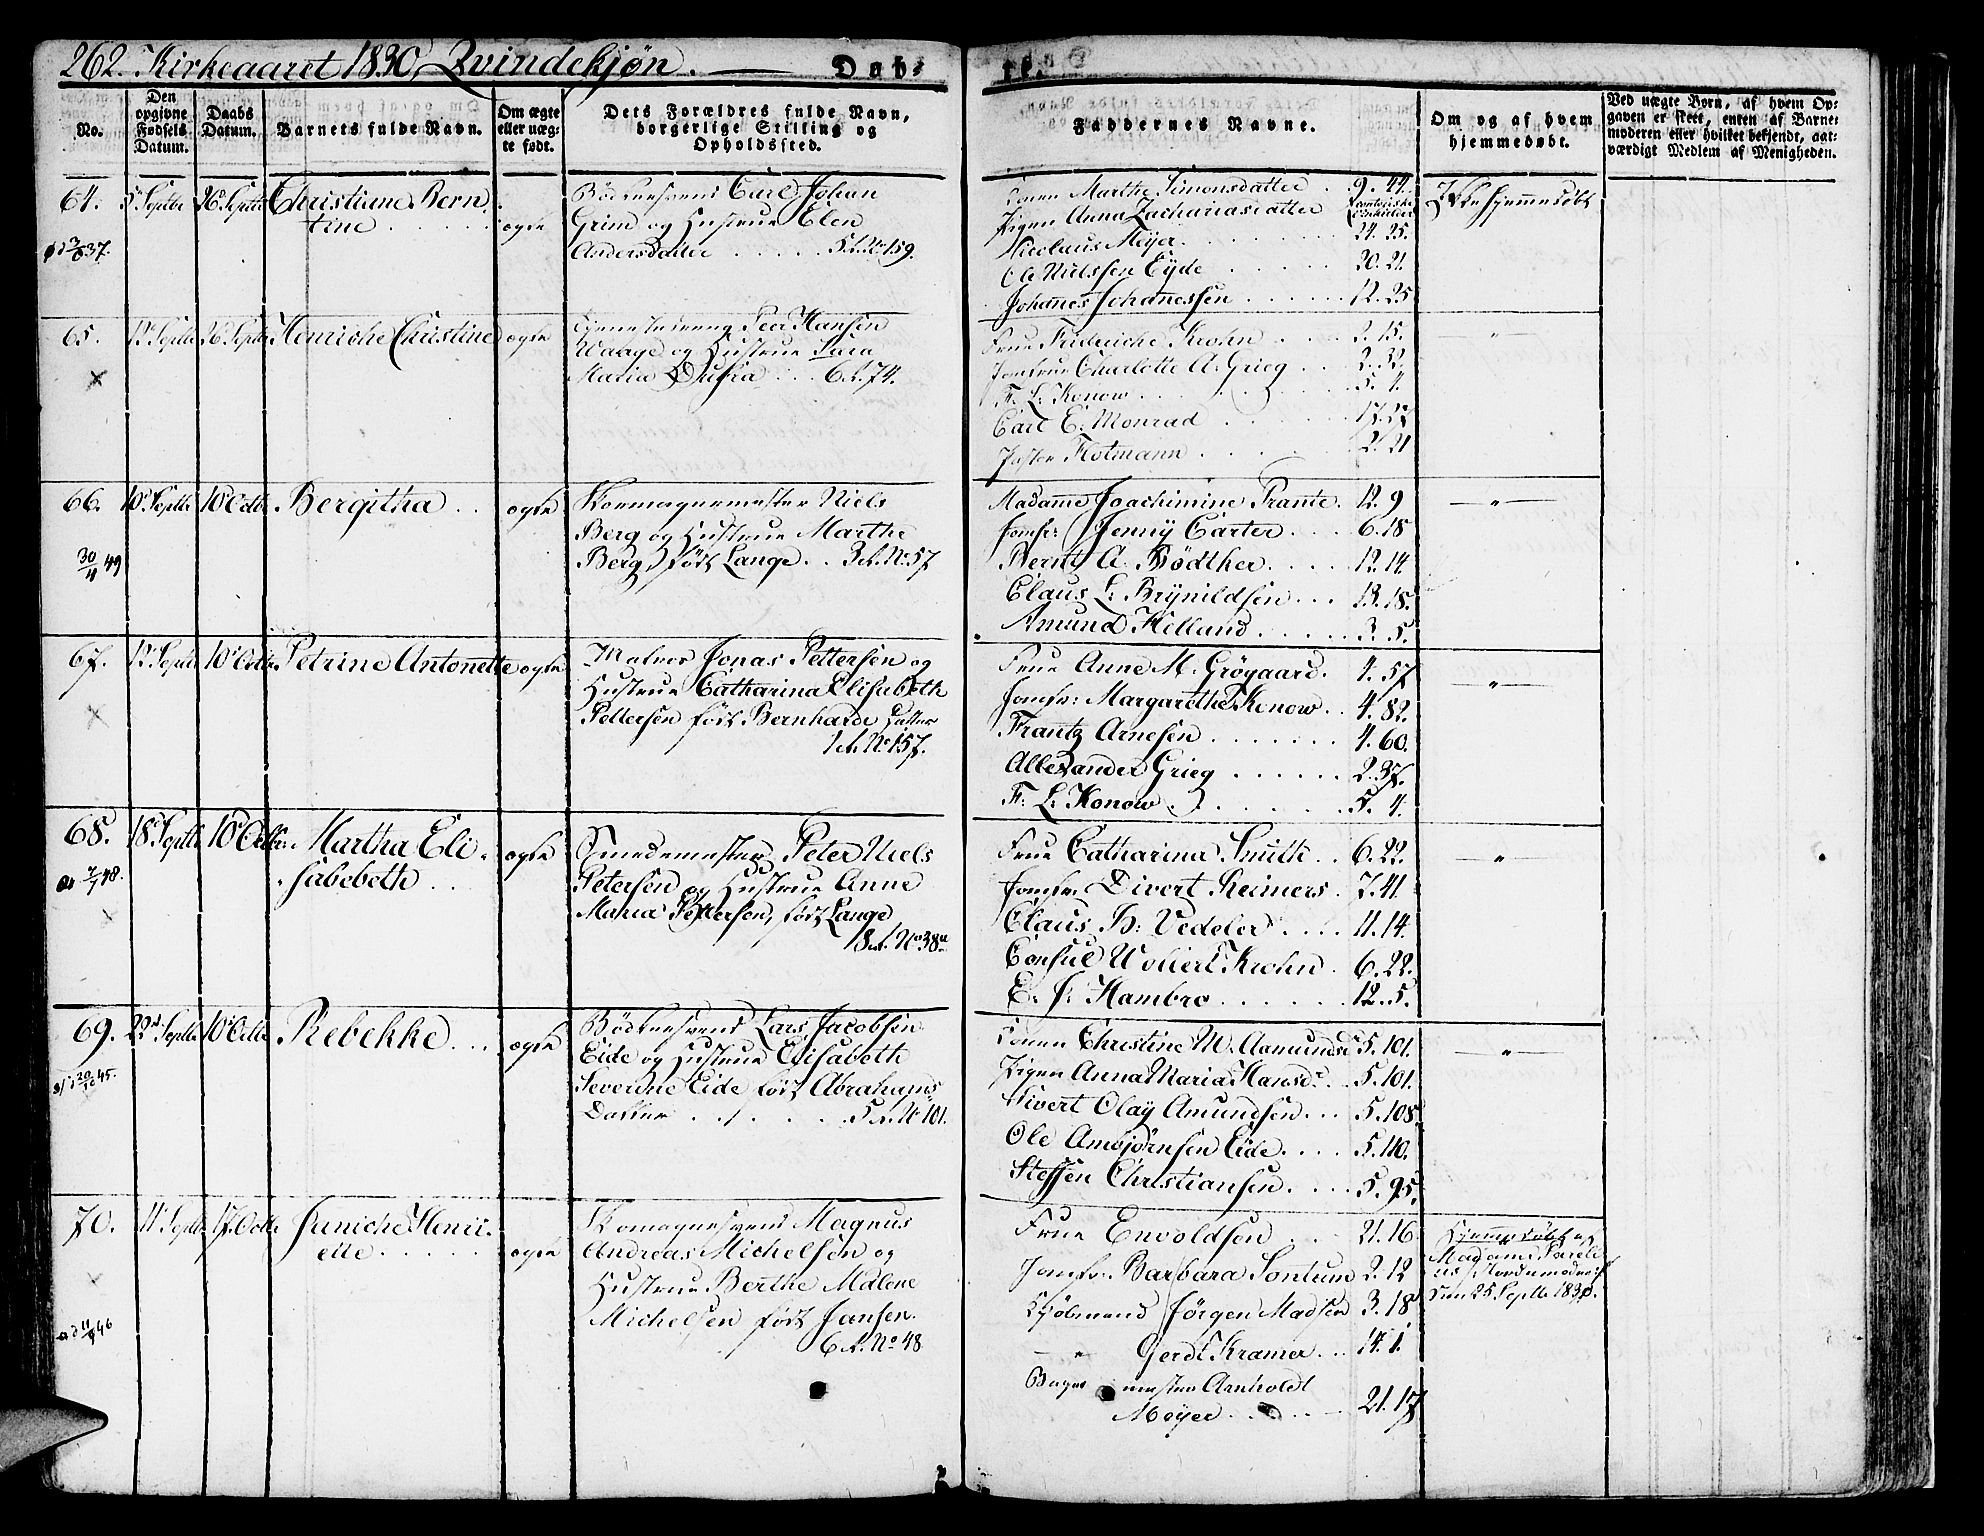 262. Kirkeaaret 1830, Qvindekjøn. Døb-
te.
No.
Den opgivne Fødsels Datum.
Daabs Datum.
Barnets fulde Navn.
Om ægte eller uæg-te født.
Dets Forældres fulde Navn, borgerlige Stilling og Opholdssted.
Faddernes Navne.
Om og af hvem hjemmedøbt.
Ved uægte Børn, af hvem Op-
gaven er skeet, enten af Barne-
moderen eller hvilket bekjendt, aat-
værdigt Medlem af Menigheden.
64. 5 Septbr 26 Septbr Christiane Bern-
tine . . . . . ægte
Bödkersvend Carl Johan
Grim og Hustrue Elen
Andersdatter . . . . . 5 R. No 159.
Konen Marthe Simonsdatter . 9. 44.
Pigen Anna Zachariasdatter
Nicolaus Meyer . . . . . 24. 25.
Ole Nielssen Eyde . . . . . 20. 21.
Johanes Johanessen . . . . . 12. 25
Ikke hjemmedøbt
65. 12 Septbr 26 Septbr Henriche Christine ægte
Peer Hansen
Waage og Hustrue Sara
Maria Dufva . . . 6 R. 74.
Frue Frideriche Krohn . . . 2. 15.
Jomfrue Charlotte A. Grieg . . . 2. 32.
F. L: Konow . . . . 5. 4.
Carl E. Monrad . . . . 17. 27
Flotmann . . . . 2. 21
66. 10 Septbr 10 Octbr Bergitha . . ægte
30/11 49
Skomagermester Niels
Berg og Hustrue Marthe
Berg, født Lange . . 3 R. No. 57
Madame Joachimine Prante. 12. 9
Jomfr: Jenny Carter . . . . 6. 18
Bernt A. Bödtker . . . . . 12. 14.
Claus L: Brynildsen . . . 13. 18.
Amund Helland . . . . . 3. 5.
67. 12 Septbr 10 Octbr Petrine Antonette ægte
Maler Jonas Pettersen og
Hustrue Catharina Elisabeth
Pettersen født Bernharde Datter
1 R. No 157.
Frue Anne M. Grøgaard. 4. 57
Jomfr: Margarethe Konow . . 4. 82.
Frantz Arnesen . . . . . . . 4. 60.
Allexander Grieg . . . . . . 2. 37.
F. L: Konow . . . . . . . 5. 4.
68. 18 Septbr 10 Octbr Martha Eli-
sabebeth . . . ægte
Smedemester Peter Niels
Petersen og Hustrue Anne
Maria Pettersen, født Lange
Frue Catharina Smith . . 6. 22.
Jomfr: Divert Reimers . 7. 41
Claus H: Vedeler . . . . 11. 14.
Consul Wollert Krohn . 6. 22.
E. J. Hambro . . . . . . 12. 5.
69. 22 Septbr 10 Octbr Rebekke . . . ægte
Bödkersvend Lars Jacobsen
Eide og Hustrue Elisabeth
Severine Eide født Abrahams-
Datter . . . . . . . 5 R. No 101.
Konen Christine M. Aamundsd 5. 101.
Pigen Anna Maria Hansd. . . 5. 101.
Sivert Olay Amundsen . . . 5. 108.
Ole Ambjørnsen Eide . . . . 5. 110.
Steffen Christiansen . . . . 5. 95.
70. 11 Septbr 17 Octbr Juniche Henri-
ette . . . . . ægte
Skomagersvend Magnus
Andreas Michelsen og
Hustrue Berthe Malene
Michelsen født Jansen.
6 R. No 48
Frue Envoldsen . . . 21. 16.
Jomfr: Barbara Sontum 2. 12
Kjøbmand Jörgen Madsen 3. 18
— " Gerdt Kramer . . . 14. 1.
Bagermester Arnholdt
Meyer . . . . . 21. 17
Hjemmedøbt af
Madame
Jordemoder
den 25 Septbr 1830.